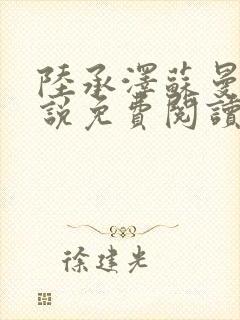 陸承澤蘇曼
說免費閱讀
徐建光